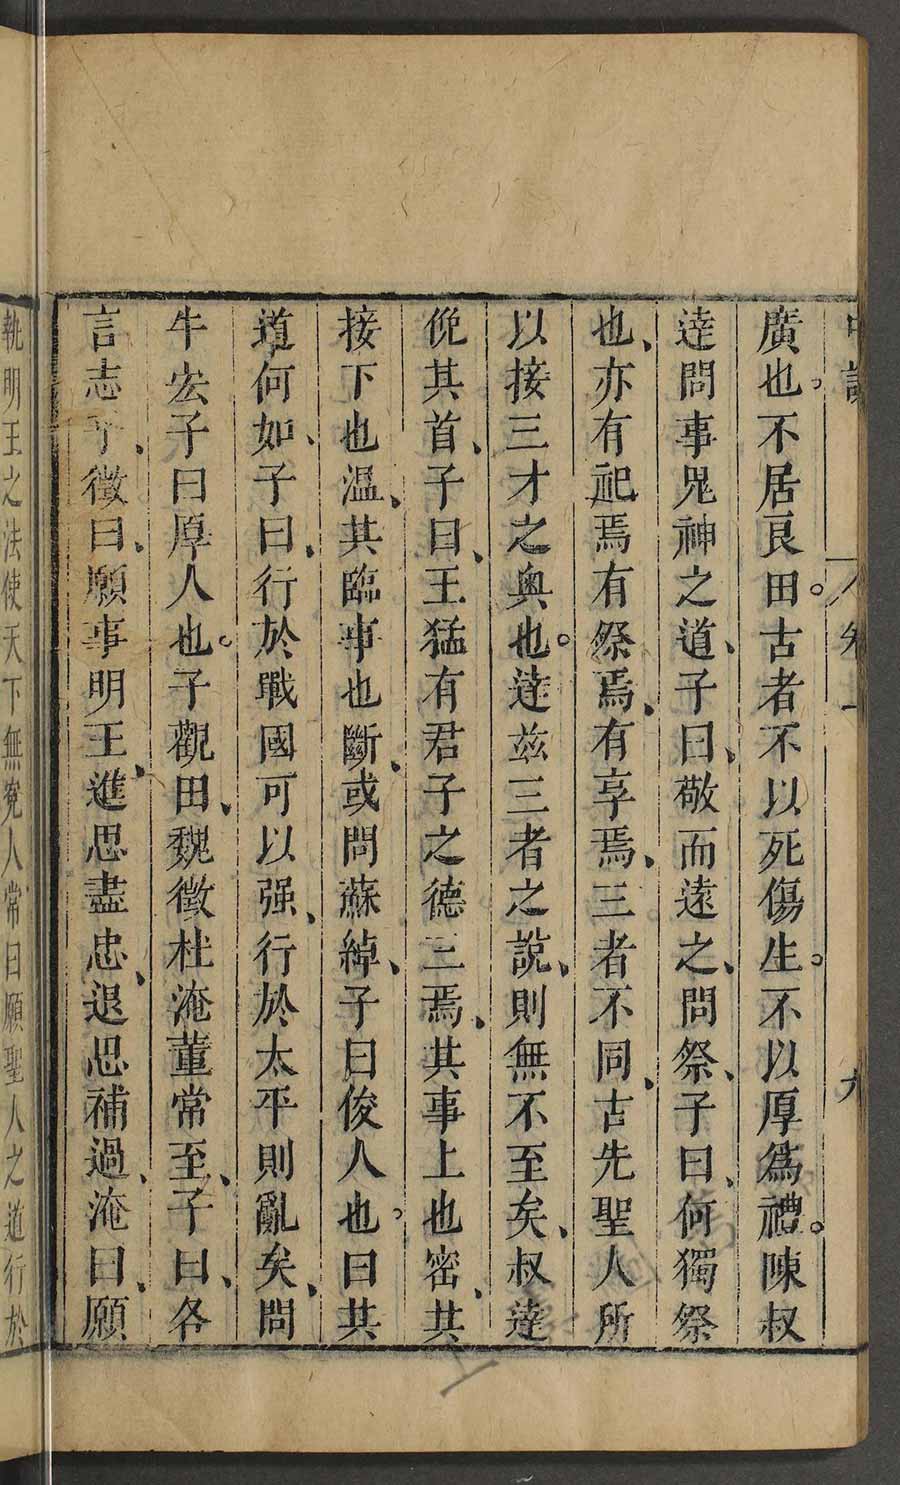 廣也。不居良田。古者不以死傷生。不以厚為禮。陳叔
達問事鬼神之道、子曰、敬而遠之、問祭、子曰、何獨祭
也、亦有祀焉有祭焉、有享焉、三者不同、古先聖人所
以接三才之奧也。達兹三者之說、則無不至矣、叔達
俛其首、子曰、王猛有君子之德三焉、其事上也密、其
接下也溫、其臨事也斷、或問蘇綽、子曰俊人也。曰其
道何如、子曰、行於戰國可以强、行於太平則亂矣、問
牛宏子曰厚人也。子觀田、魏徵杜淹董常至、子曰、各
言志乎、徵曰、願事明王、進思盡忠、退思補過、淹曰、願
執明王之法使天下無寃人常曰願聖人之道行於